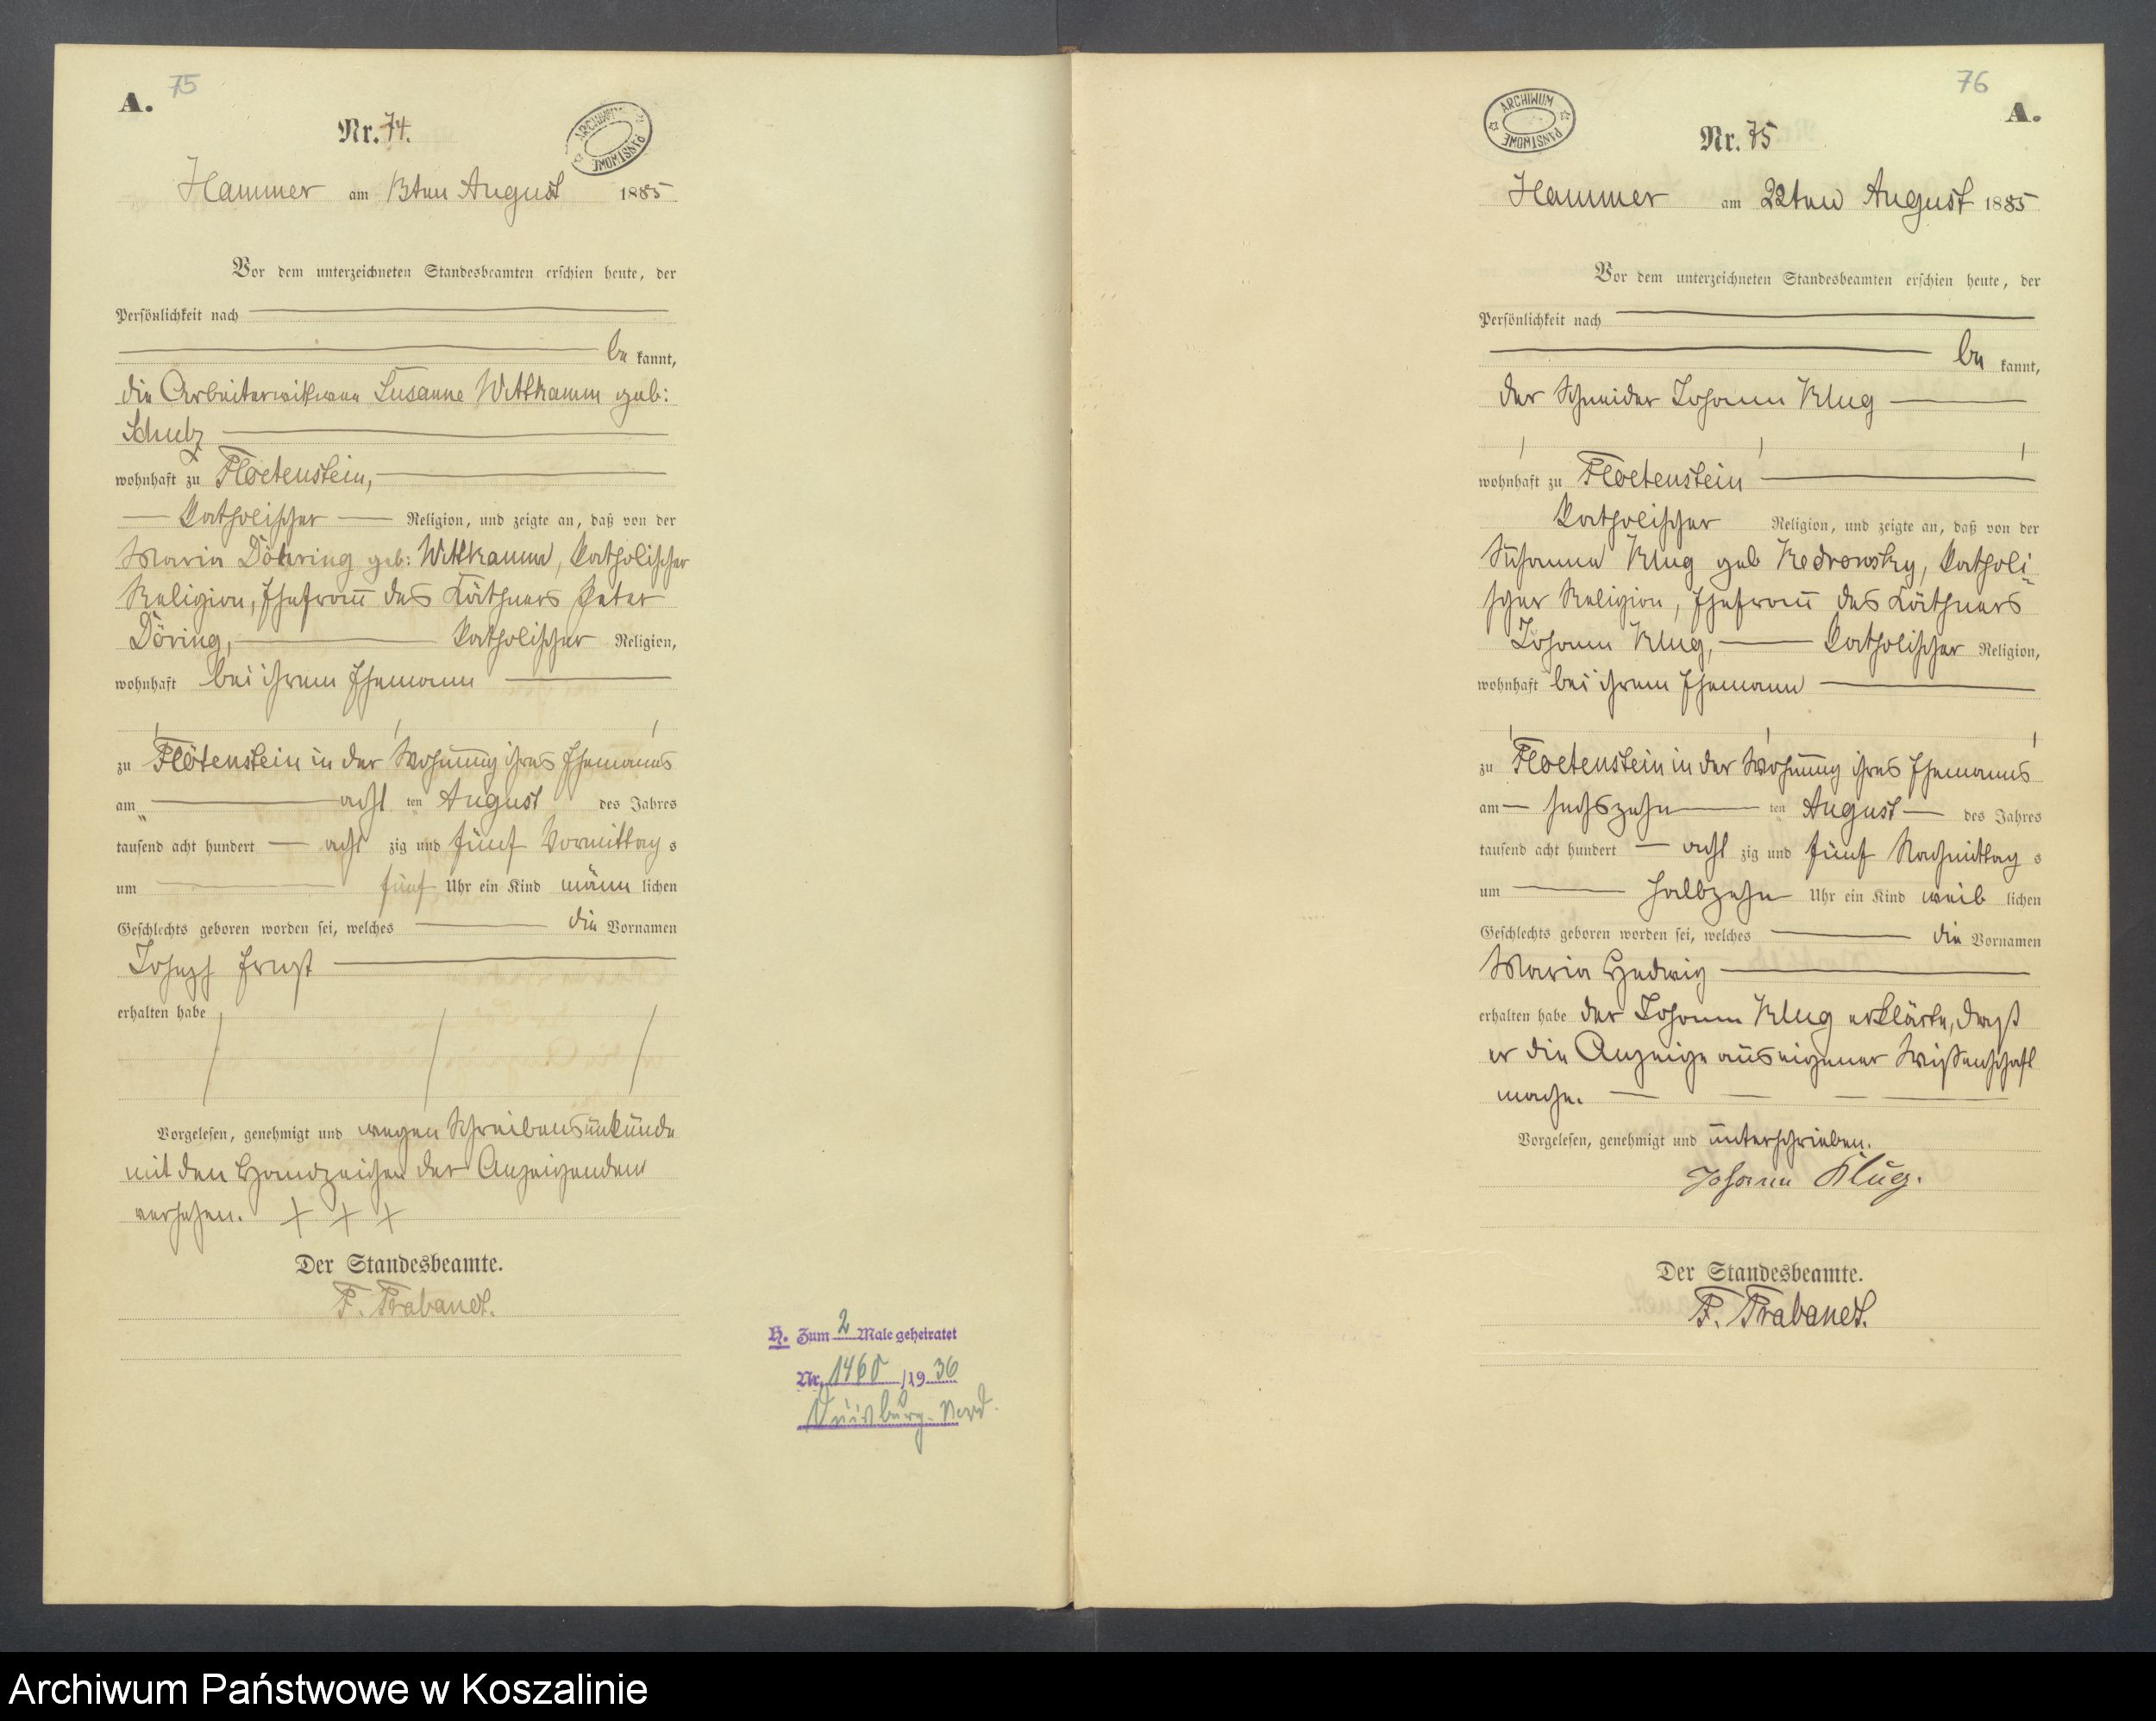 75
A.
Nr. 74.
ARCHIWUM PAŃSTWOWE
Hammer am 13ten August 1885
Vor dem unterzeichneten Standesbeamten erschien heute, der
Persönlichkeit nach
be kannt,
die Arbeiterwittwe Susanne Wittkamm geb:
Schulz
wohnhaft zu Floetenstein,
katholischer Religion, und zeigte an, daß von der
Maria Döhring geb: Wittkamm, katholischer
Religion, Ehefrau des Käthners Peter
Döring, katholischer Religion,
wohnhaft bei ihrem Ehemann
zu Flötenstein in der Wohnung ihres Ehemanns
am acht ten August des Jahres
tausend acht hundert acht zig und fünf Vormittag s
um fünf Uhr ein Kind männ lichen
Geschlechts geboren worden sei, welches die Vornamen
Joseph Ernst
erhalten habe
Vorgelesen, genehmigt und wegen Schreibensunkunde
mit den Handzeichen der Anzeigenden
versehen. + + +
Der Standesbeamte.
F. Trabandt.
H. Zum 2 Male geheiratet
Nr. 1460 /19 36
Duisburg-Nord.
76
A.
ARCHIWUM PAŃSTWOWE
Nr. 75
Hammer am 22ten August 1885
Vor dem unterzeichneten Standesbeamten erschien heute, der
Persönlichkeit nach
be kannt,
der Schneider Johann Klug
wohnhaft zu Floetenstein
katholischer Religion, und zeigte an, daß von der
Susanna Klug geb Kedrowsky, katholi-
scher Religion, Ehefrau des Käthners
Johann Klug, katholischer Religion,
wohnhaft bei ihrem Ehemann
zu Floetenstein in der Wohnung ihres Ehemanns
am sechszehn ten August des Jahres
tausend acht hundert acht zig und fünf Nachmittag s
um halbzehn Uhr ein Kind weib lichen
Geschlechts geboren worden sei, welches die Vornamen
Maria Hedwig
erhalten habe der Johann Klug erklärte, daß
er die Anzeige aus eigener Wißenschaft
mache.
Vorgelesen, genehmigt und unterschrieben.
Johann Klug.
Der Standesbeamte.
F. Trabandt.
Archiwum Państwowe w Koszalinie